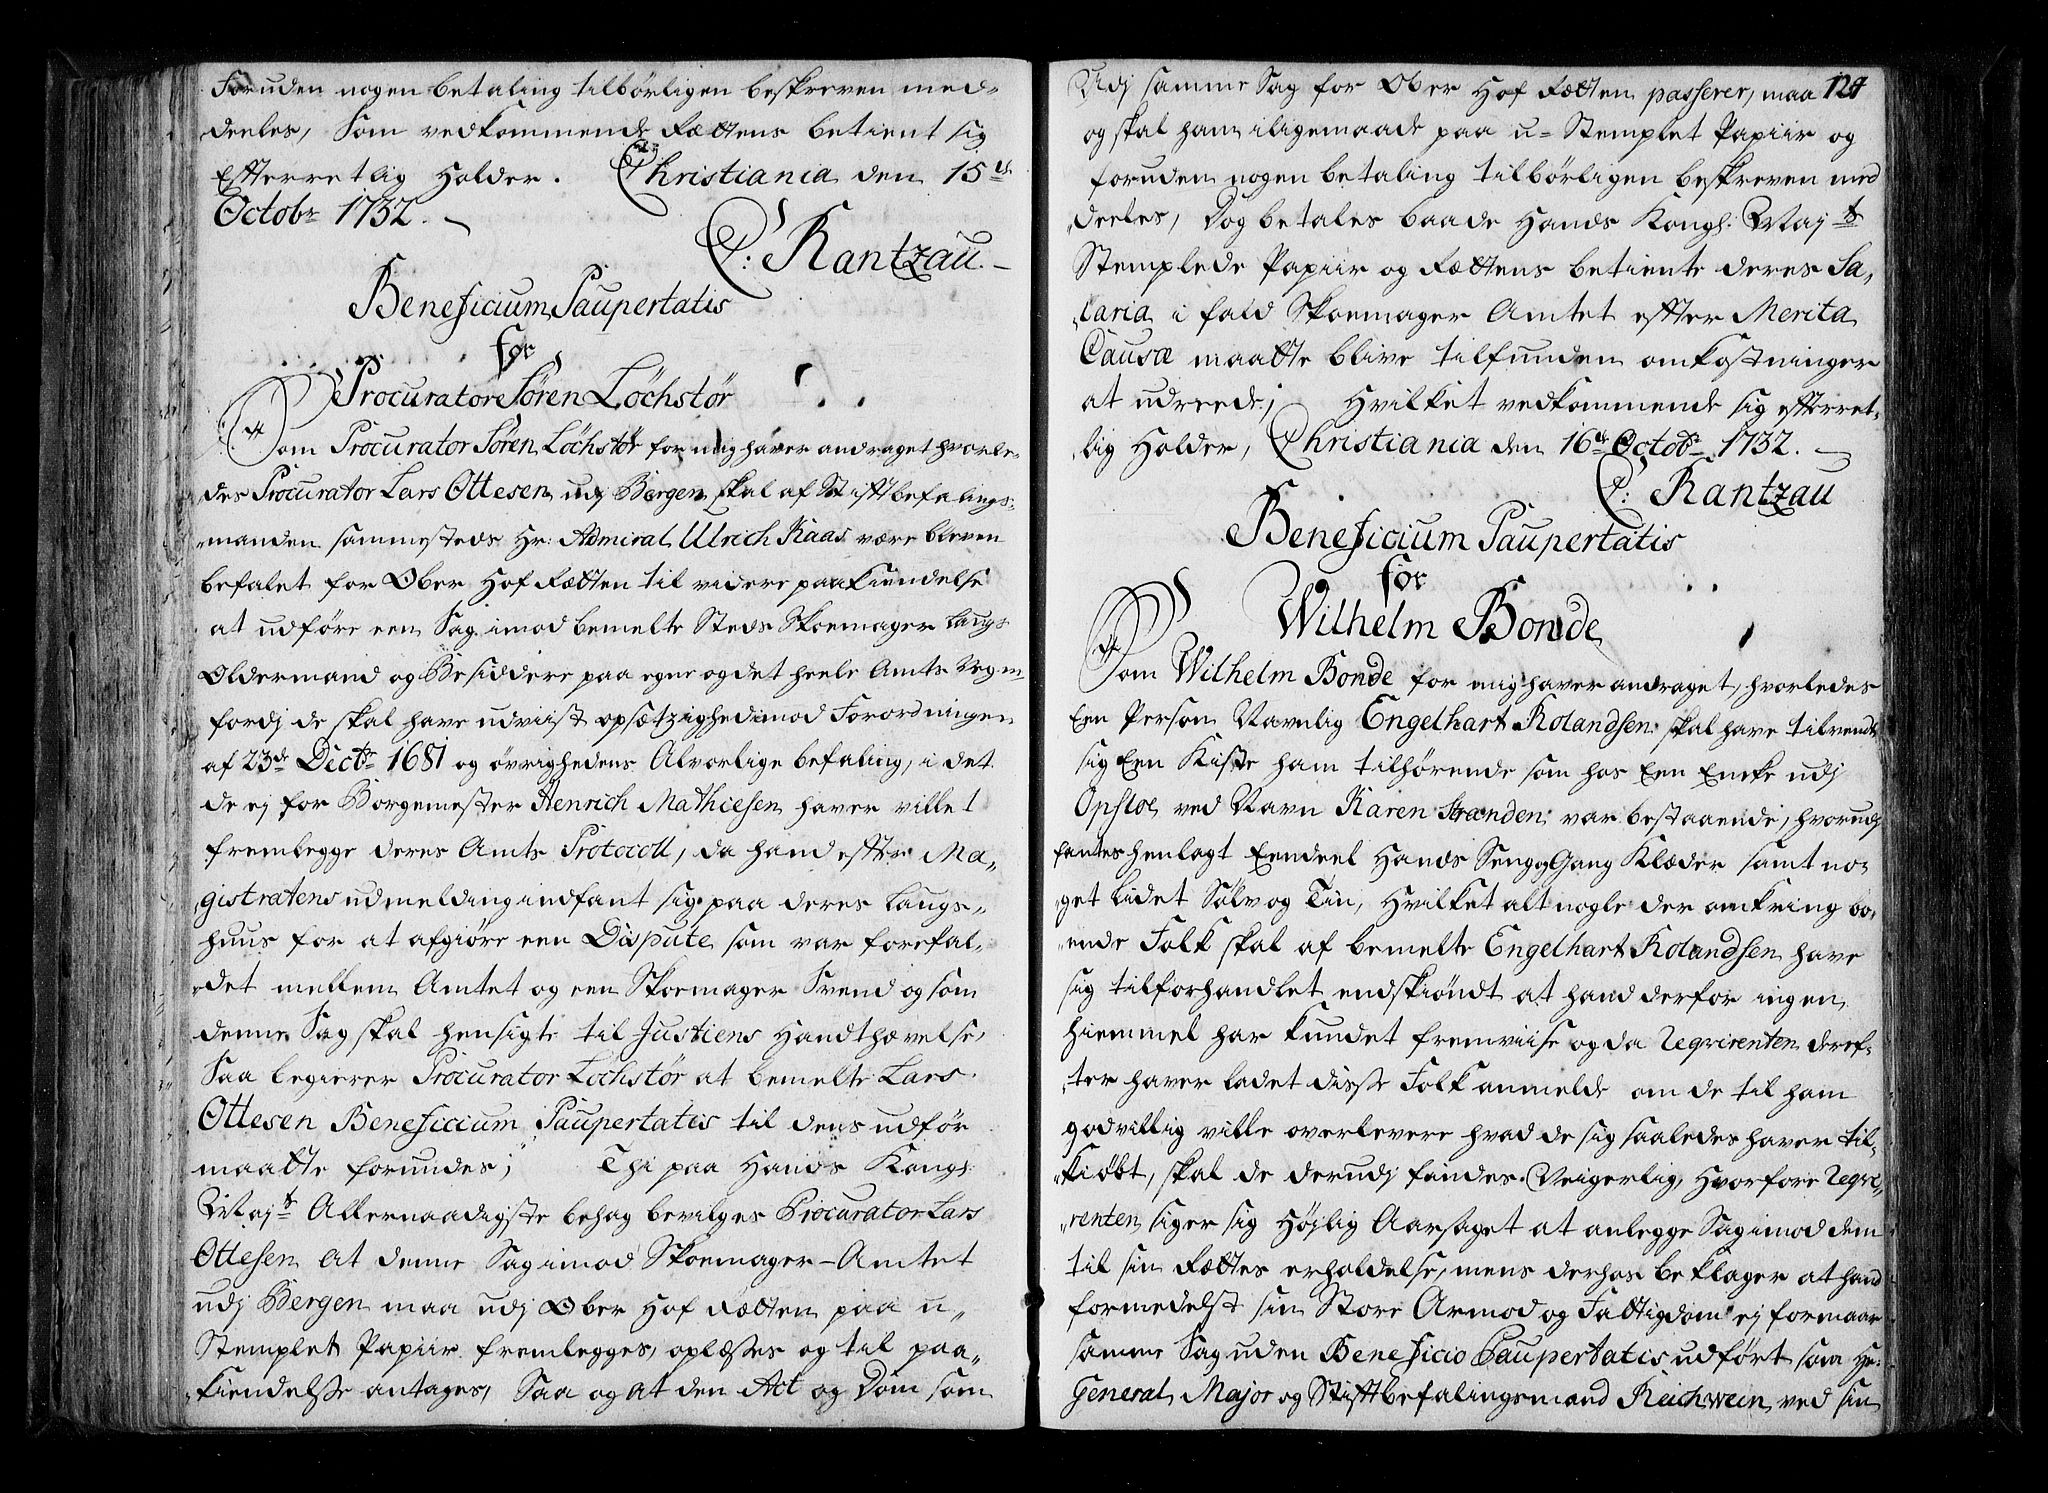 foruden nogen betaling tilbørligen beskreven med-
deeles, Som vedkommende Rættens betient sig
Efterretlig Holder. Christiania den 15de
Octobr 1732.
C: Rantzau.
Beneficium Paupertatis
for
Procurator Søren Löchstör
Som Procurator Sören Löchstör for mig haver andraget hvorle-
des Procurator Lars Ottesen udj Bergen skal af Stiftbefalings-
manden sammesteds Hr: Admiral Ulrich Kaas være bleven
befalet for Ober Hof Rætten til videre paakiendelse
at udföre een Sag imod bemelte Steds Skoemager Laugs
Oldermand og Besiddere paa egne og det heele Amts vegne
fordj de skal have udviist opsætzighed imod Forordningen
af 23de Dectbr 1681 og øvrighedens Alvorlige befaling, i det
de ej for Borgemester Henrich Mathiesen haver villet
fremlegge deres Amts Protocoll, da hand efter Ma-
gistratens udmelding indfant sig paa deres Laugs-
huus for at afgiöre een Dispute som var forefal-
det mellem Amtet og een Skoemager Svend og som
denne Sag skal hensigte til Justiens Handthævelse,
Saa begierer Procurator Lochstör at bemelte Lars
Ottesen Beneficium Paupertatis til dens udför
maatte forundes; Thi paa Hands Kongl:
Mayts Allernaadigste behag bevilges Procurator Lars
Ottesen at denne Sag imod Skoemager-Amtet
udj Bergen maa udj Ober Hof Rætten paa u-
Stemplet Papiir fremlegges, oplæsses og til paa-
kiendelsse antages, Saa og at den Act og Dom som
124
Udj samme Sag for Ober Hof Rætten passerer, maa
og skal ham iligemaade paa u-Stemplet Papiir og
foruden nogen betaling tilbörligen beskreven med
deeles, Dog betales baade Hands Kongl: Mayts
Stemplede Papiir og Rættens betiente deres Sa-
laria i fald Skoemager Amtet efter Merita
Causæ maatte blive tilfunden omkostninger
at udreede; Hvilket vedkommende sig efterret-
lig Holder, Christiania den 16de Octobr 1732.
C: Rantzau
Beneficium Paupertatis
for
Wilhelm Bonde
Som Wilhelm Bonde for mig haver andraget, hvorledes
Een Person Navnlig Engelhart Rolandsen skal have tilvendt
sig Een Kiste ham tilhørende som hos Een Encke udj
Opsloe ved Navn Karen Stranden var bestaaende, hvorudj
fantes henlagt Eendeel Hands Seng og Gang Klæder samt no-
get lidet Sølv og Tin, Hvilket alt nogle der omkring bo-
ende Folk skal af bemelte Engelhart Rolandsen have
sig tilforhandlet endskiöndt at hand derfor ingen
Hiemmel har kundet fremviise og da Reqvirenten deref-
ter haver ladet disse Folk anmelde om de til ham
godvillig ville overlevere hvad de sig saaledes haver til-
kiøbt, skal de derudj findes Veigerlig, Hvorfore Reqvi-
renten siger sig Høylig Aarsaget at anlegge Sag imod dem
til sin Rættes erholdelse, mens derhos beklager at hand
formedelst sin Store Armod og Fattigdom ej formaar
samme Sag uden Beneficio Paupertatis udført som Hr:
General Major og Stiftbefalingsmand Reichwein ved sin